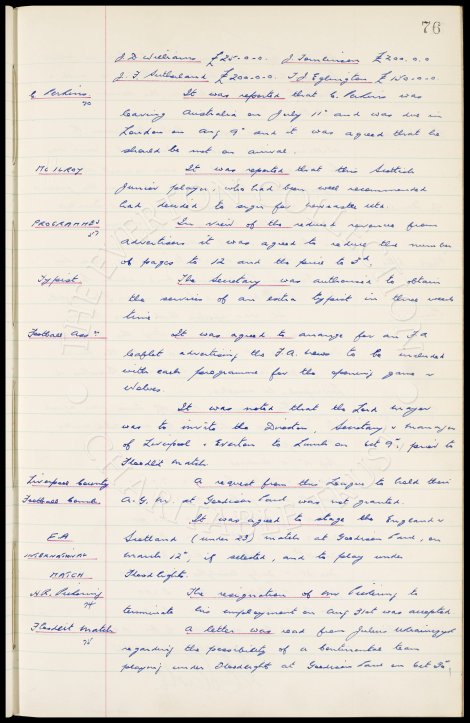 76
J.D Williams £25.0.0. J Tomlinson £200.0.0
J. F. Sutherland £200.0.0. T J Eglington £150.0.0
C. Perkins. It was reported that C. Perkins was
70
leaving Australia on July 11th and was due in
London on Aug 9th and it was agreed that he
should be met on arrival.
McILROY It was reported that this Scottish
Junior player, who had been well recommended
had decided to sign for Newcastle Utd.
PROGRAMMES In view of the reduced revenue from
advertisers it was agreed to reduce the number
of pages to 12 and the price to 3d.
Typist. The Secretary was authorised to obtain
the services of an extra typist in three weeks
time
Football Assn It was agreed to arrange for an F A
leaflet advertising the F.A. News to be included
with each programme for the opening game v
Wolves.
It was noted that the Lord Mayor
was to invite the Directors, Secretary & Manager
of Liverpool & Everton to Lunch on Oct 9th, prior to
Floodlit Match.
Liverpool County A request from this League to hold their
Football Comb. A.G.M. at Goodison Park was not granted.
It was agreed to stage the England v
F.A Scotland (under 23) match at Goodison Park, on
INTERNATIONAL March 12th, if selected, and to play under
MATCH Floodlights.
H.R. Pickering The resignation of Mr Pickering to
74
terminate his employment on Aug 31st was accepted
Floodlit Match A letter was read from Julius
75
regarding the possibility of a Continental team
playing under Floodlights at Goodison Park on Oct
THE EVERTON COLLECTION
CHARITABLE TRUST